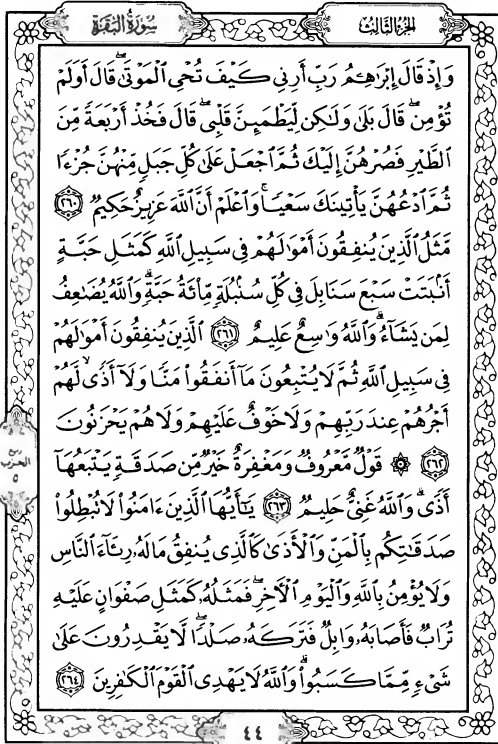 الجزء الثالث
سورة البقرة
وَإِذْ قَالَ إِبْرَٰهِـۧمُ رَبِّ أَرِنِى كَيْفَ تُحْىِ ٱلْمَوْتَىٰ ۖ قَالَ أَوَلَمْ
تُؤْمِن ۖ قَالَ بَلَىٰ وَلَـٰكِن لِّيَطْمَئِنَّ قَلْبِى ۖ قَالَ فَخُذْ أَرْبَعَةً مِّنَ
ٱلطَّيْرِ فَصُرْهُنَّ إِلَيْكَ ثُمَّ ٱجْعَلْ عَلَىٰ كُلِّ جَبَلٍ مِّنْهُنَّ جُزْءًا
ثُمَّ ٱدْعُهُنَّ يَأْتِينَكَ سَعْيًا ۚ وَٱعْلَمْ أَنَّ ٱللَّهَ عَزِيزٌ حَكِيمٌ ٢٦٠
مَّثَلُ ٱلَّذِينَ يُنفِقُونَ أَمْوَٰلَهُمْ فِى سَبِيلِ ٱللَّهِ كَمَثَلِ حَبَّةٍ
أَنۢبَتَتْ سَبْعَ سَنَابِلَ فِى كُلِّ سُنۢبُلَةٍ مِّا۟ئَةُ حَبَّةٍ ۗ وَٱللَّهُ يُضَـٰعِفُ
لِمَن يَشَآءُ ۗ وَٱللَّهُ وَٰسِعٌ عَلِيمٌ ٢٦١ ٱلَّذِينَ يُنفِقُونَ أَمْوَٰلَهُمْ
فِى سَبِيلِ ٱللَّهِ ثُمَّ لَا يُتْبِعُونَ مَآ أَنفَقُوا۟ مَنًّا وَلَآ أَذًى ۙ لَّهُمْ
أَجْرُهُمْ عِندَ رَبِّهِمْ وَلَا خَوْفٌ عَلَيْهِمْ وَلَا هُمْ يَحْزَنُونَ
٢٦٢ ۞ قَوْلٌ مَّعْرُوفٌ وَمَغْفِرَةٌ خَيْرٌ مِّن صَدَقَةٍ يَتْبَعُهَآ
أَذًى ۗ وَٱللَّهُ غَنِىٌّ حَلِيمٌ ٢٦٣ يَـٰٓأَيُّهَا ٱلَّذِينَ ءَامَنُوا۟ لَا تُبْطِلُوا۟
صَدَقَـٰتِكُم بِٱلْمَنِّ وَٱلْأَذَىٰ كَٱلَّذِى يُنفِقُ مَالَهُۥ رِئَآءَ ٱلنَّاسِ
وَلَا يُؤْمِنُ بِٱللَّهِ وَٱلْيَوْمِ ٱلْـَٔاخِرِ ۖ فَمَثَلُهُۥ كَمَثَلِ صَفْوَانٍ عَلَيْهِ
تُرَابٌ فَأَصَابَهُۥ وَابِلٌ فَتَرَكَهُۥ صَلْدًا ۖ لَّا يَقْدِرُونَ عَلَىٰ
شَىْءٍ مِّمَّا كَسَبُوا۟ ۗ وَٱللَّهُ لَا يَهْدِى ٱلْقَوْمَ ٱلْكَـٰفِرِينَ ٢٦٤
الحزب
٥
٤٤